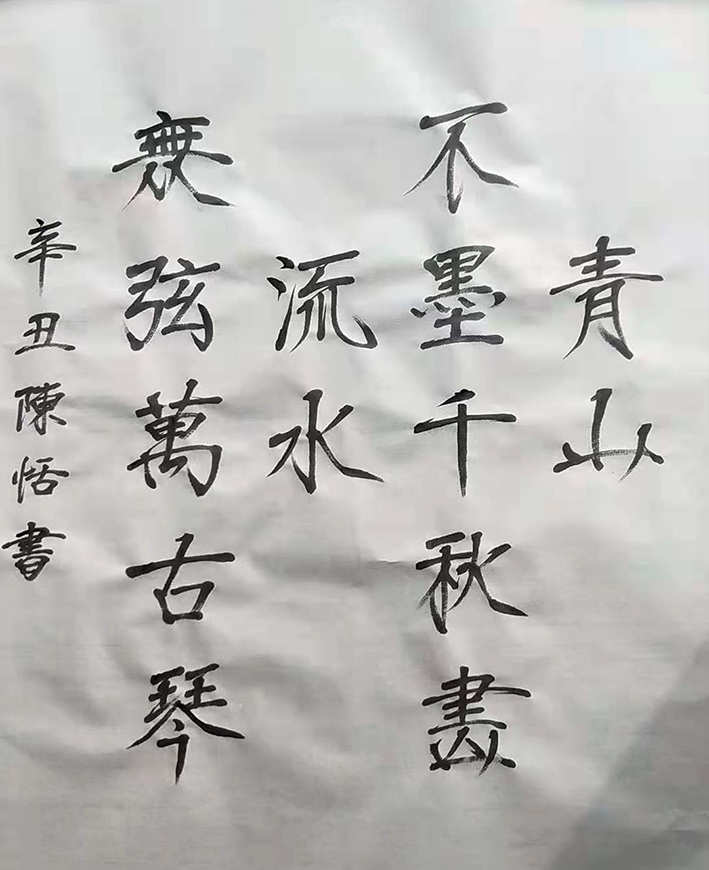 青山
不墨千秋畫
流水
無弦萬古琴
辛丑陳恬書